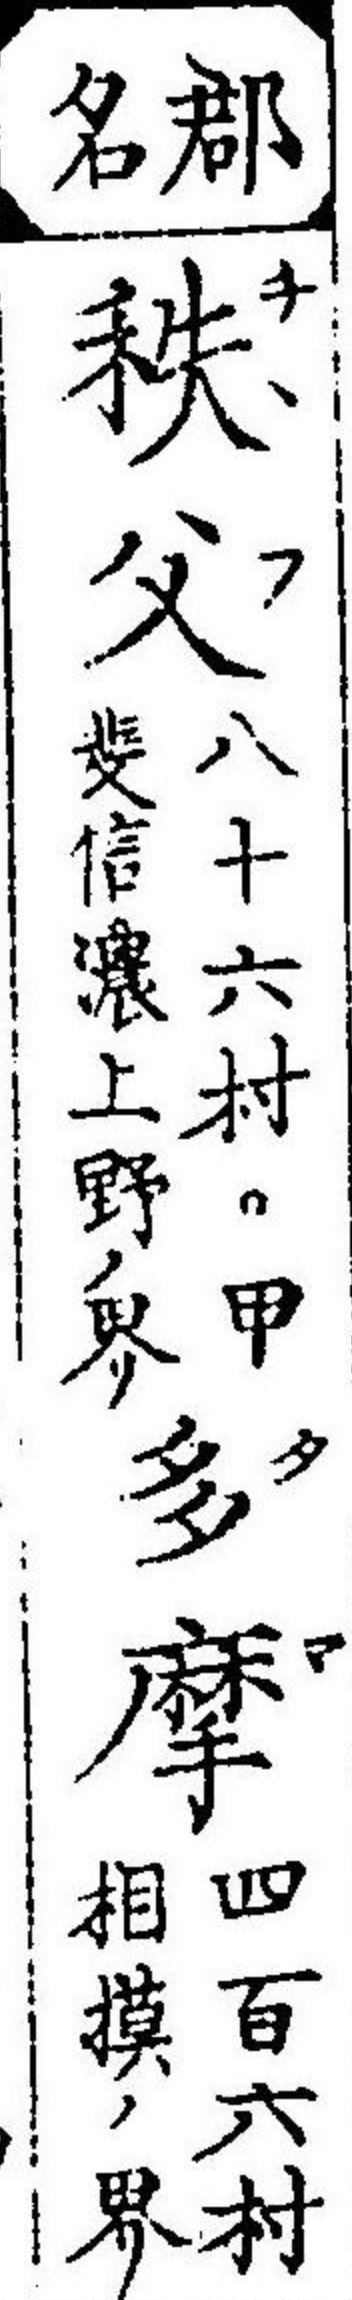 郡名
秩父
チヽフ
八十六村。甲
斐信濃上野ノ界リ
多摩
タマ
四百六村
相摸ノ界